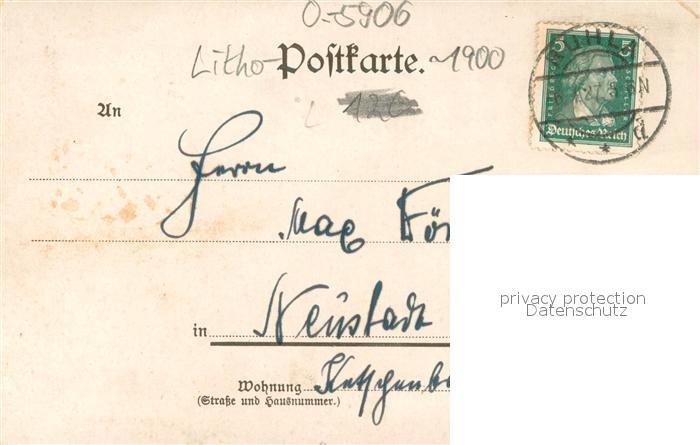 O-5906
Litho- Postkarte. ~1900
120
An
5 5
FRIEDRICH
Deutsches Reich
Herrn
Max För
in Neustadt
Wohnung Ketschenb
(Straße und Hausnummer.)
privacy protection
Datenschutz